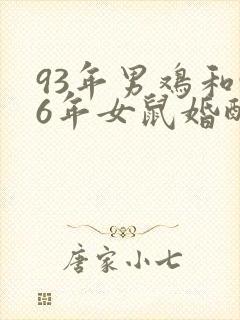 93年男鸡和
6年女鼠婚配
唐家小七